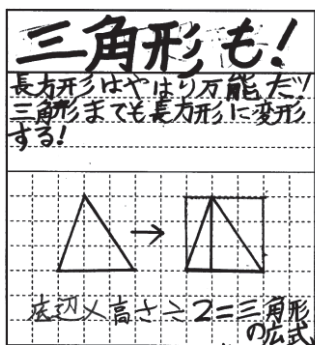 三角形も!
長方形はやはり万能だ!
三角形までも長方形に変形
する!
底辺×高さ÷2=三角形
の広式